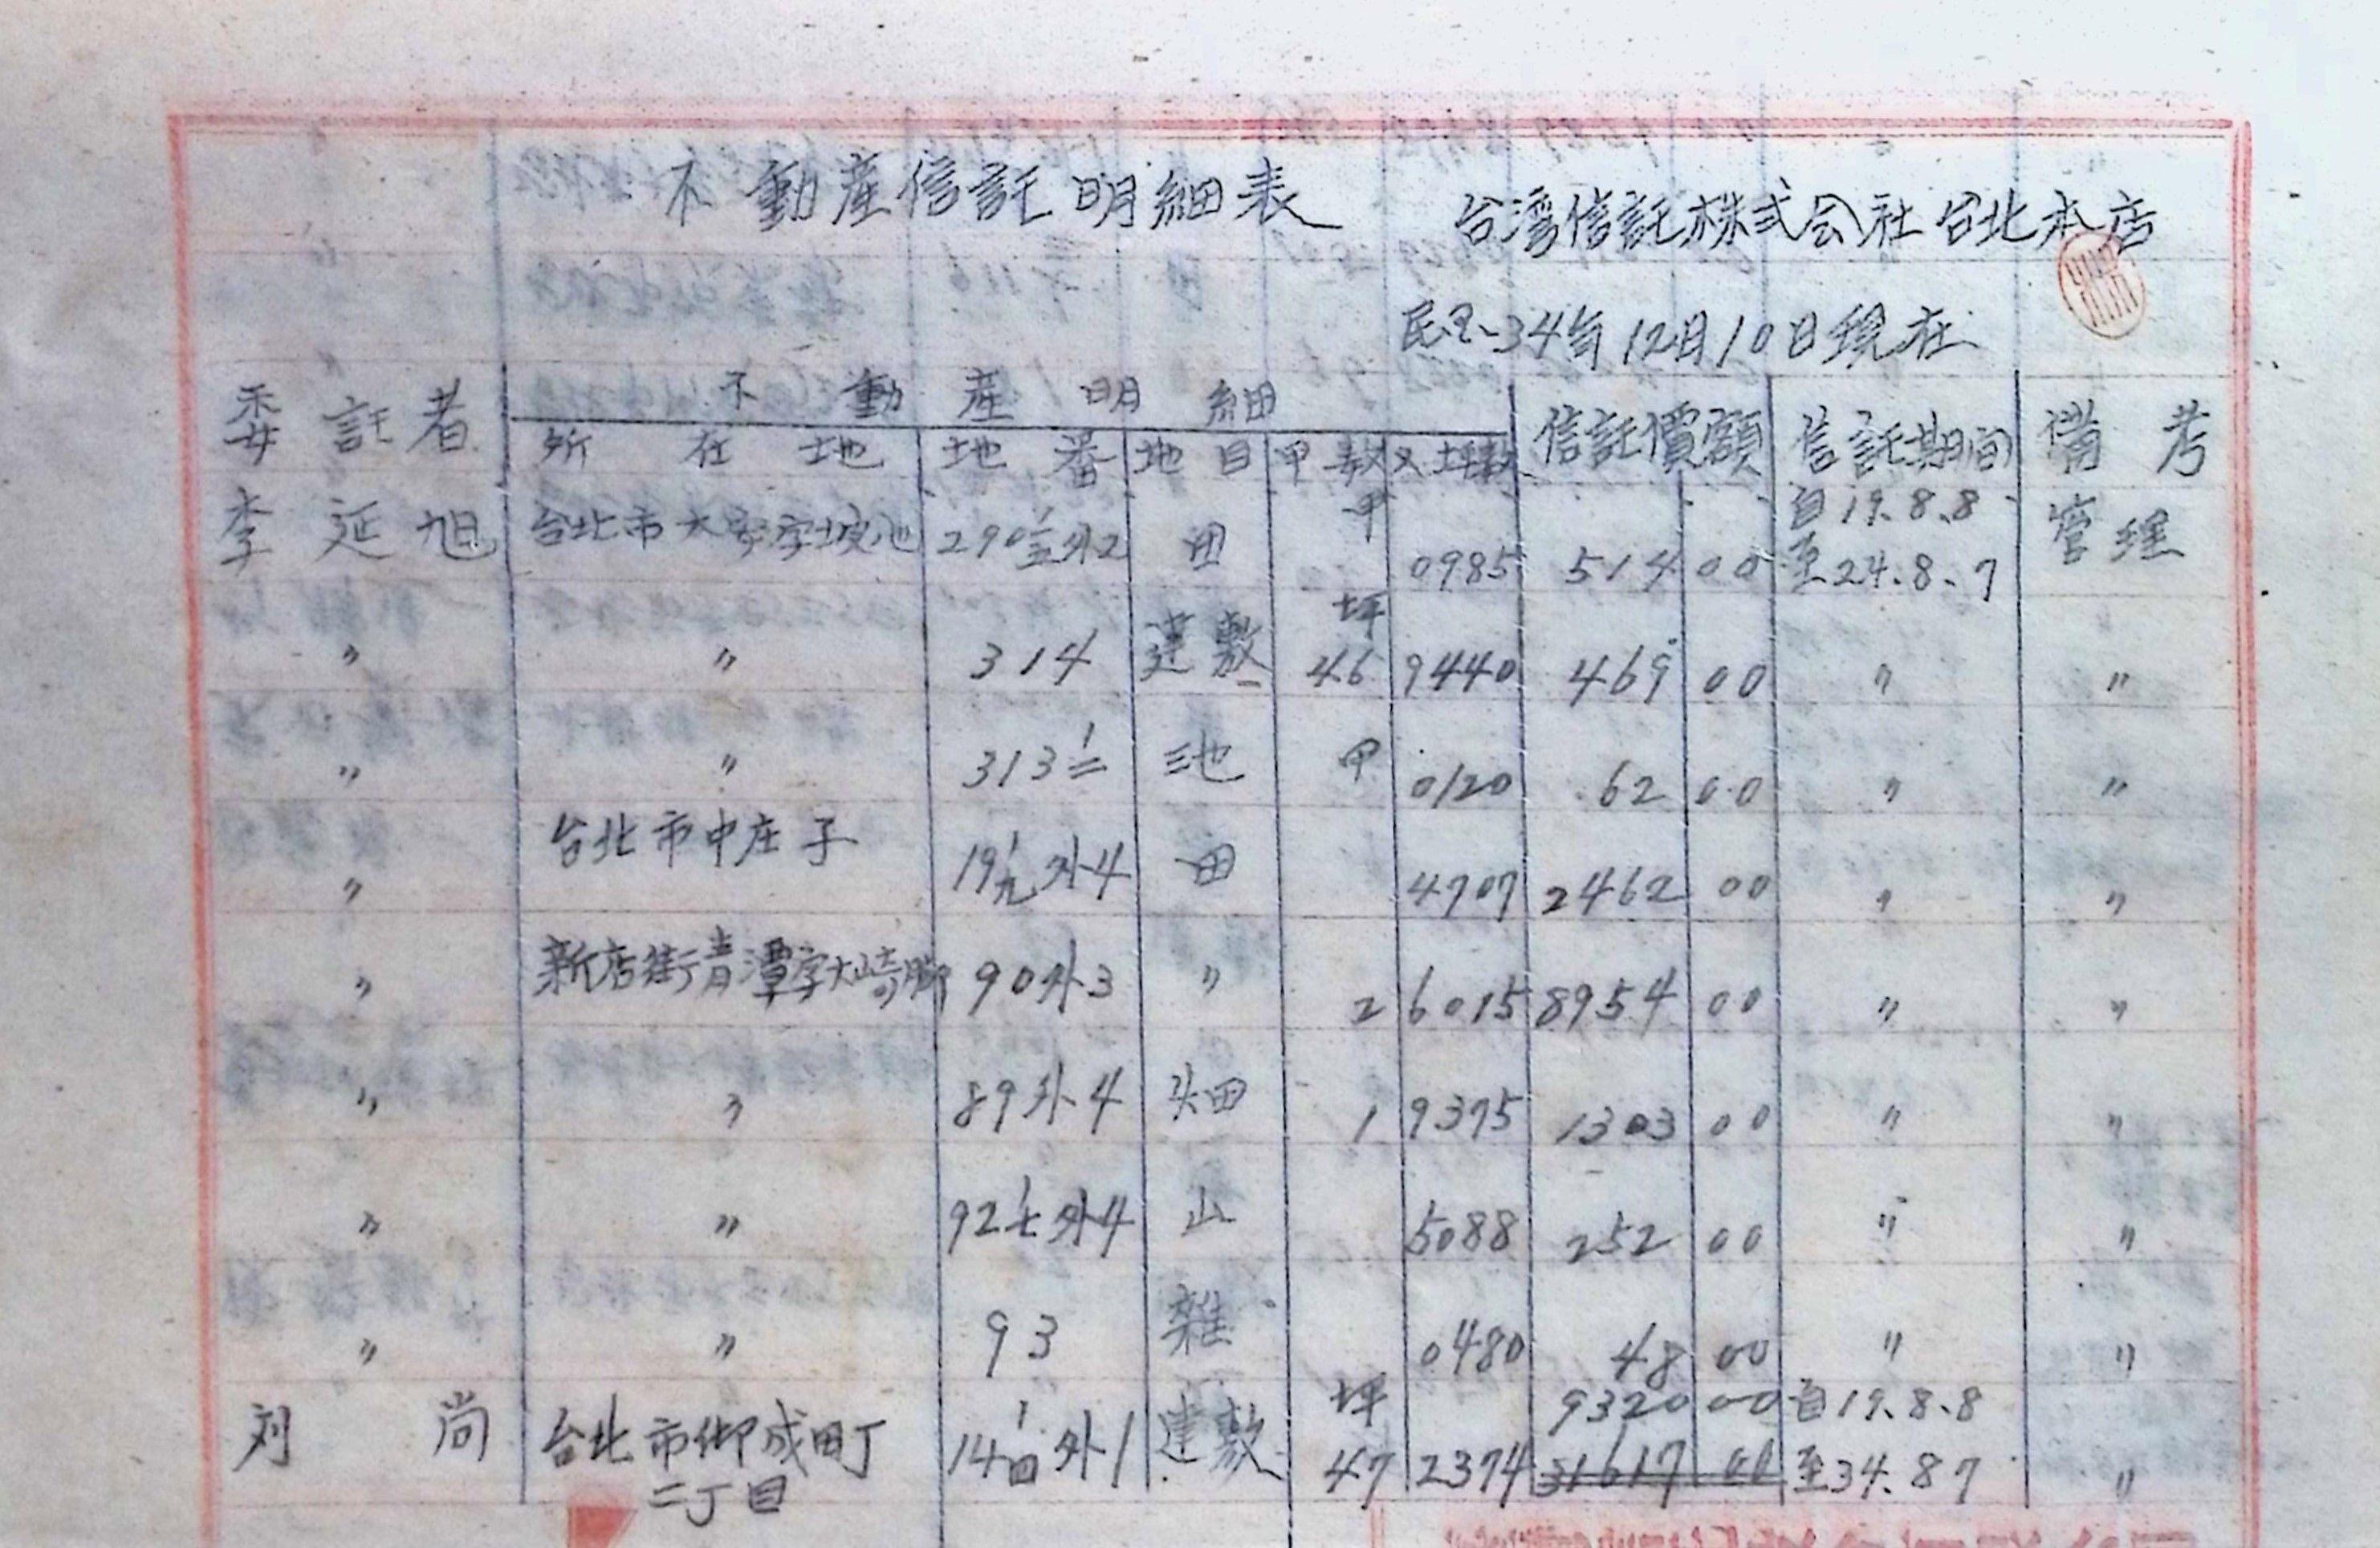 不動產信託明細表
台湾信託株式会社台北本店
民國34年12月10日現在
委託者 不動產明細 信託價額 信託期间 備考
所在地 地番 地目 甲数又坪数
李延旭 台北市大安字坡心 290 1/五外2 田 甲 0985 514 00 自19.8.8 至24.8.7 管理
〃 〃 314 建敷 坪 46 9440 469 00 〃 〃
〃 〃 313 1/二 池 甲 0120 62 00 〃 〃
〃 台北市中庄子 19 1/九外4 田 4707 2462 00 〃 〃
〃 新店街青潭字大崎脚 90外3 〃 2 6015 8954 00 〃 〃
〃 〃 89外4 畑 1 9375 1303 00 〃 〃
〃 〃 92 1/七外4 山 5088 252 00 〃 〃
〃 〃 93 雜 0480 48 00 〃 〃
刘尚 台北市御成町二丁目 14 1/四外1 建敷 坪 47 2374 9320 00 31617 00 自19.8.8 至34.8.7 〃